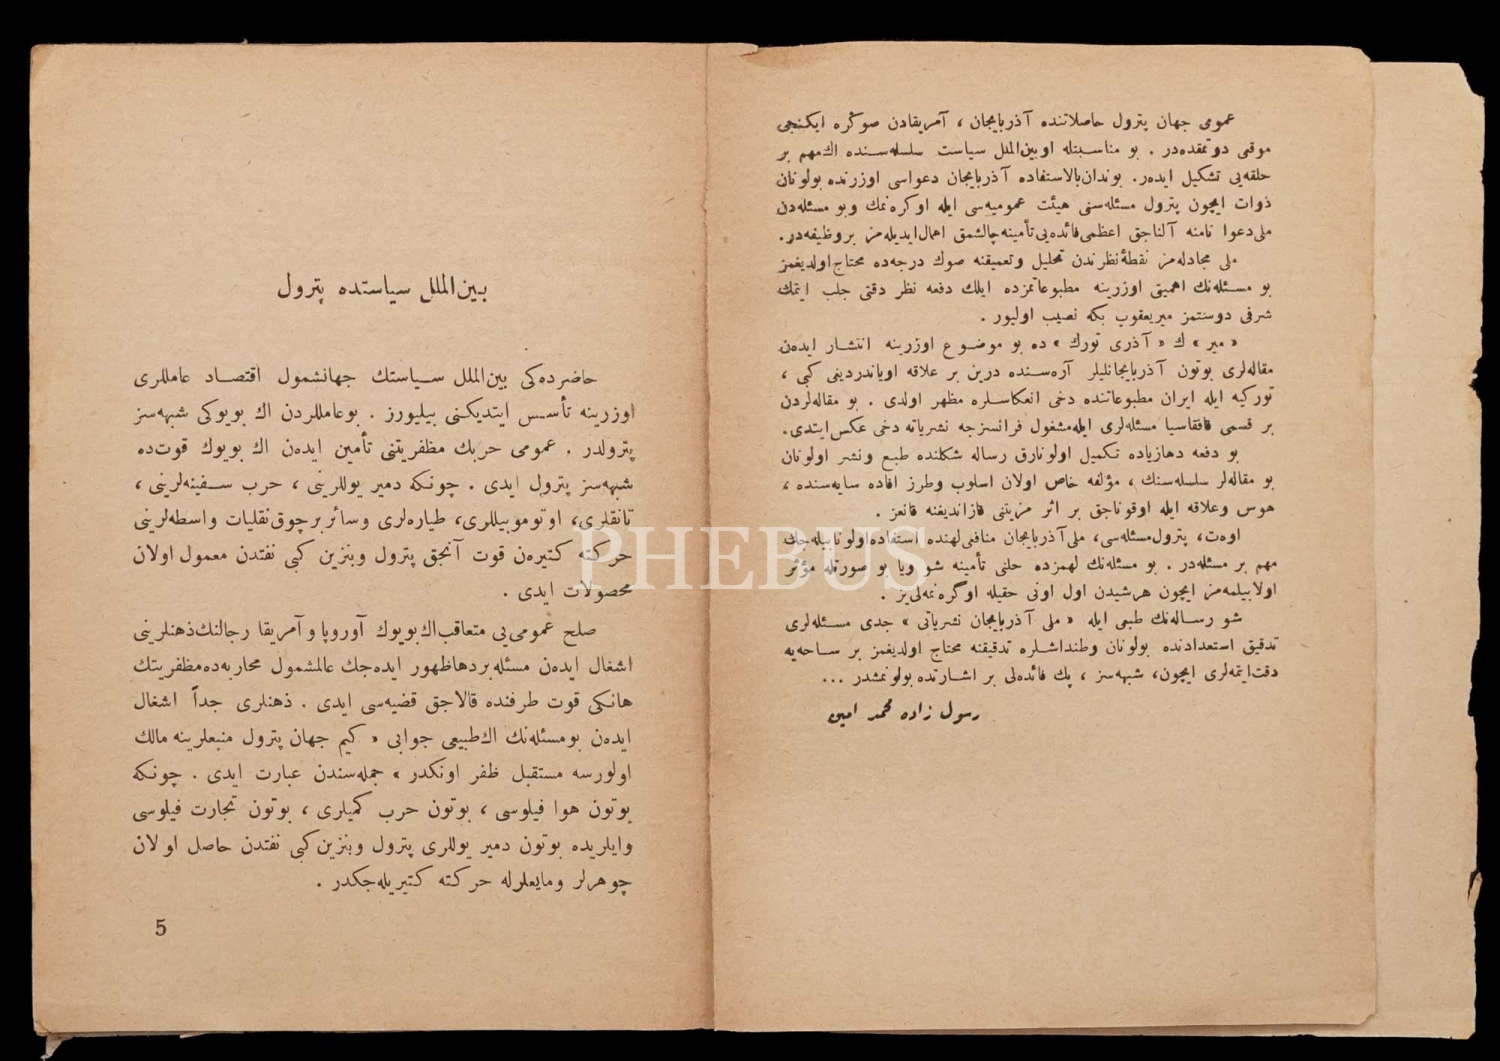 عمومی جهان پترول حاصلاتنده آذربایجان ، آمریقادن صوڭره ایکنجی
موقعی دوتمقده‌در . بو مناسبتله او بین‌الملل سیاست سلسله‌سنده اڭ مهم بر
حلقه‌یی تشکیل ایده‌ر. بوندان بالاستفاده آذربایجان دعواسی اوزرنده بولونان
ذوات ایچون پترول مسئله‌سنی هیئت عمومیه‌سی ایله اوکره‌نمك وبو مسئله‌دن
ملی دعوا نامنه آلناجق اعظمی فائده‌یی تأمینه چالشمق اهمال ایدیله‌مز بر وظیفه‌در.
ملی مجادله‌مز نقطهٔ نظرندن تحلیل وتعمیقنه صوك درجه‌ده محتاج اولدیغمز
بو مسئله‌نك اهمیتی اوزرینه مطبوعاتمزده ایلك دفعه نظر دقتی جلب ایتمك
شرفی دوستمز میریعقوب بکه نصیب اولیور .
« میر » ك « آذری تورك » ده بو موضوع اوزرینه انتشار ایدەن
مقاله‌لری بوتون آذربایجانلیلر آره‌سنده درین بر علاقه اویاندردیغی کبی ،
تورکیه ایله ایران مطبوعاتنده دخی انعکاسلره مظهر اولدی . بو مقاله‌لردن
بر قسمی قافقاسیا مسئله‌لری ایله مشغول فرانسزجه نشریاته دخی عکس ایتدی.
بو دفعه دهازیاده تکمیل اولونارق رساله شکلنده طبع ونشر اولونان
بو مقاله‌لر سلسله‌سنك ، مؤلفه خاص اولان اسلوب وطرز افاده سایه‌سنده ،
هوس وعلاقه ایله اوقوناجق بر اثر مزیتنی قازاندیغنه قانعز .
اوەت، پترول مسئله‌سی، ملی آذربایجان منافعی لهنده استفاده اولونابیله‌جك
مهم بر مسئله‌در . بو مسئله‌نك لهمزده حلنی تأمینه شو ویا بو صورتله مؤثر
اولابیلمه‌مز ایچون هرشیدن اول اونی حقیله اوگره‌نمه‌لی‌یز .
شو رساله‌نك طبعی ایله « ملی آذربایجان نشریاتی » جدی مسئله‌لری
تدقیق استعدادنده بولونان وطنداشلره تدقیقنه محتاج اولدیغمز بر ساحه‌یه
دقت ایتمه‌لری ایچون، شبهه‌سز ، پك فائده‌لی بر اشارتده بولونمشدر ...
رسول زاده محمد امین
بین‌الملل سیاستده پترول
حاضرده‌کی بین‌الملل سیاستك جهانشمول اقتصاد عامللری
اوزرینه تأسس ایتدیکنی بیلیورز . بو عامللردن اڭ بویوکی شبهه‌سز
پترولدر . عمومی حربك مظفریتنی تأمین ایدەن اڭ بویوك قوت ده
شبهه‌سز پترول ایدی . چونکه دمیر یوللرینی ، حرب سفینه‌لرینی ،
تانقلری، اوتوموبیللری، طیاره‌لری وسائر بر چوق نقلیات واسطه‌لرینی
حرکته کتیرەن قوت آنجق پترول وبنزین کبی نفتدن معمول اولان
محصولات ایدی .
صلح عمومی‌یی متعاقب اڭ بویوك آوروپا و آمریقا رجالنك ذهنلرینی
اشغال ایدەن مسئله بر دها ظهور ایده‌جك عالمشمول محاربه‌ده مظفریتك
هانکی قوت طرفنده قالاجق قضیه‌سی ایدی . ذهنلری جداً اشغال
ایدەن بو مسئله‌نك اڭ طبیعی جوابی « کیم جهان پترول منبعلرینه مالك
اولورسه مستقبل ظفر اونکدر » جمله‌سندن عبارت ایدی . چونکه
بوتون هوا فیلوسی ، بوتون حرب کمیلری ، بوتون تجارت فیلوسی
وایلریده بوتون دمیر یوللری پترول وبنزین کبی نفتدن حاصل اولان
جوهرلر ومایعلرله حرکته کتیریله‌جکدر .
5
PHEBUS